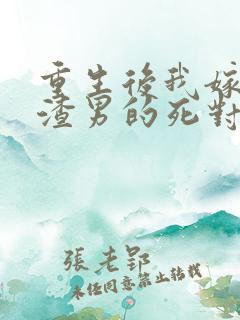 重生後我嫁
渣男的死對
張老郢
未經同意禁止轉載